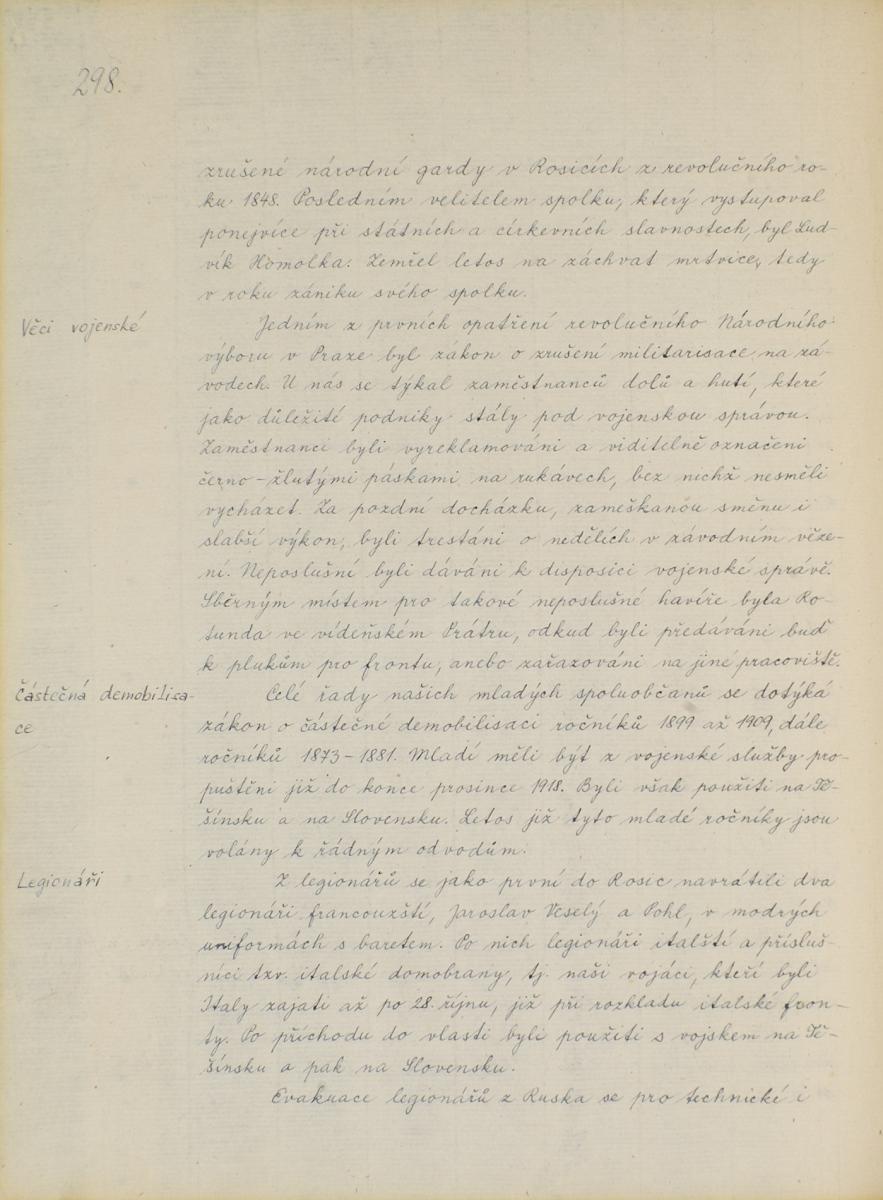 298.
zrušené národní gardy v Rosicích z revolučního ro-
ku 1848. Posledním velitelem spolku, který vystupoval
ponejvíce při státních a církevních slavnostech, byl Lud-
vík Homolka. Zemřel letos na záchvat mrtvice, tedy
v roku zániku svého spolku.
Věci vojenské
Jedním z prvních opatření revolučního Národního
výboru v Praze byl zákon o zrušení militarisace na zá-
vodech. U nás se týkal zaměstnanců dolů a hutí, které
jako důležití podniky stály pod vojenskou správou.
Zaměstnanci byli vyreklamováni a viditelně označeni
černo-žlutými páskami na rukávech, bez nichž nesměli
vycházet. Za pozdní docházku, zameškanou směnu i
slabší výkon, byli trestáni o nedělích v závodním věze-
ní. Neposlušní byli dáváni k disposici vojenské správě.
Sběrným místem pro takové neposlušné havíře byla Ro-
tunda ve vídeňském Prátru, odkud byli předáváni buď
k plukům pro frontu, anebo zařazováni na jiné pracoviště.
Částečná demobilisa-
ce
Celé řady našich mladých spoluobčanů se dotýká
zákon o částečné demobilisaci ročníků 1899 až 1909, dále
ročníků 1873-1881. Mladí měli být z vojenské služby pro-
puštěni již do konce prosince 1918. Byli však použiti na Tě-
šínsku a na Slovensku. Letos již tyto mladé ročníky jsou
volány k řádným odvodům.
Legionáři
Z legionářů se jako první do Rosic navrátili dva
legionáři francouzští, Jaroslav Veselý a Pohl, v modrých
uniformách s baretem. Po nich legionáři italští a přísluš-
níci tzv. italské domobrany, tj. naši vojáci, kteří byli
Italy zajati až po 28. říjnu, již při rozkladu italské fron-
ty. Po příchodu do vlasti byli použiti s vojskem na Tě-
šínsku a pak na Slovensku.
Evakuace legionářů z Ruska se pro technické i